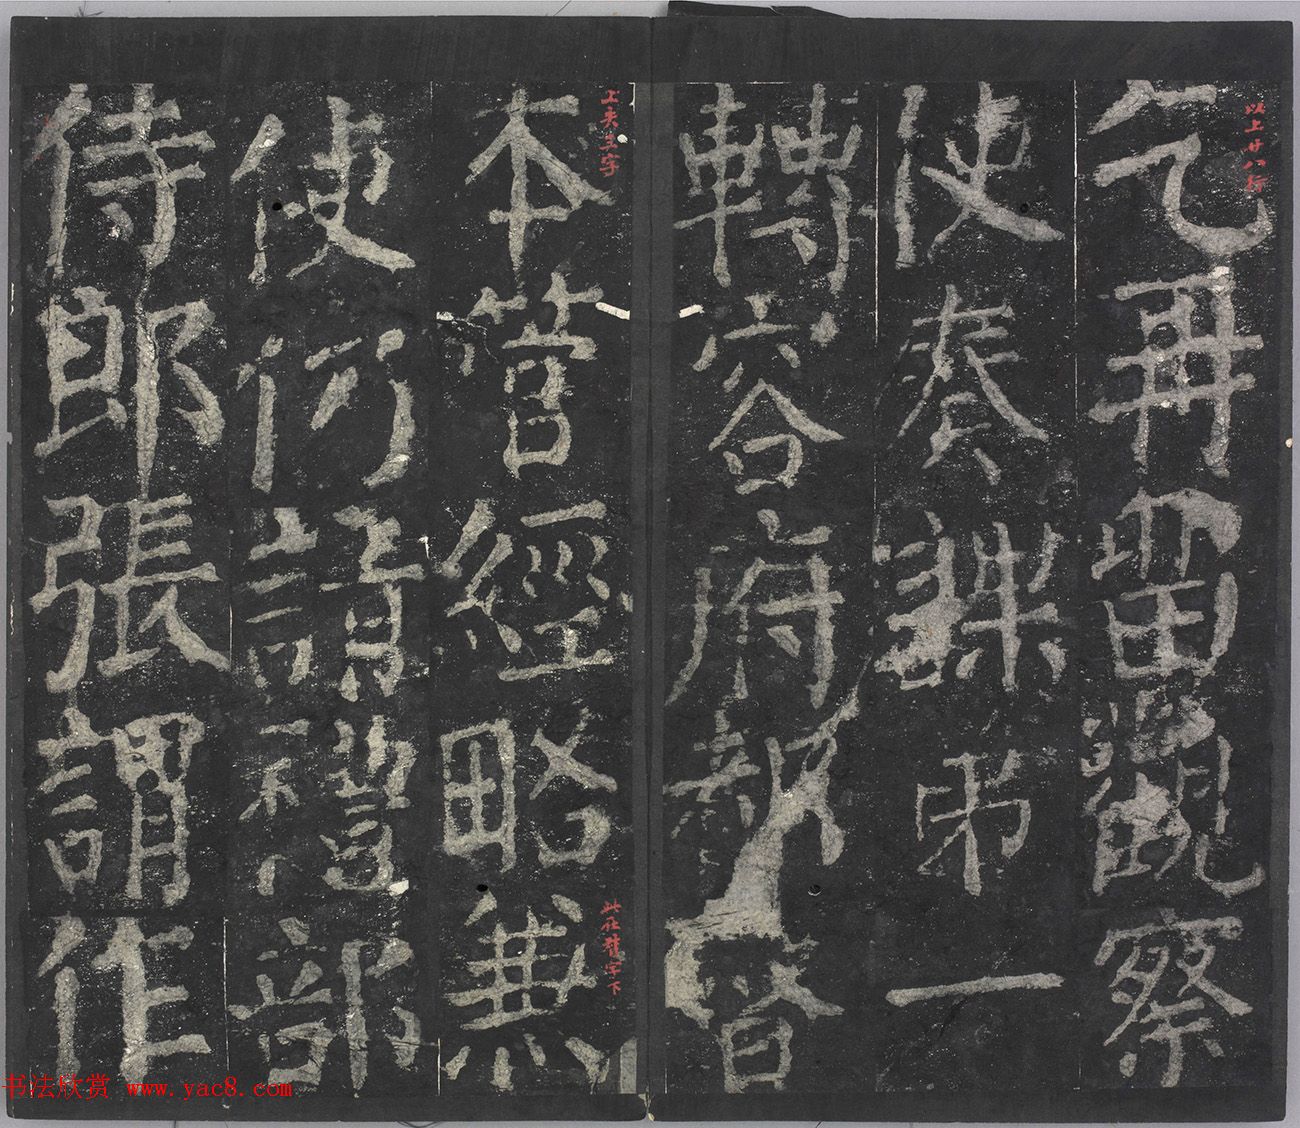 以上廿八行
乞再留觀察
使奏課第一
轉容府都督
上夾三字
本管經略
此在督字下
使仍請禮部
侍郎張謂作
书法欣赏 www.yac8.com